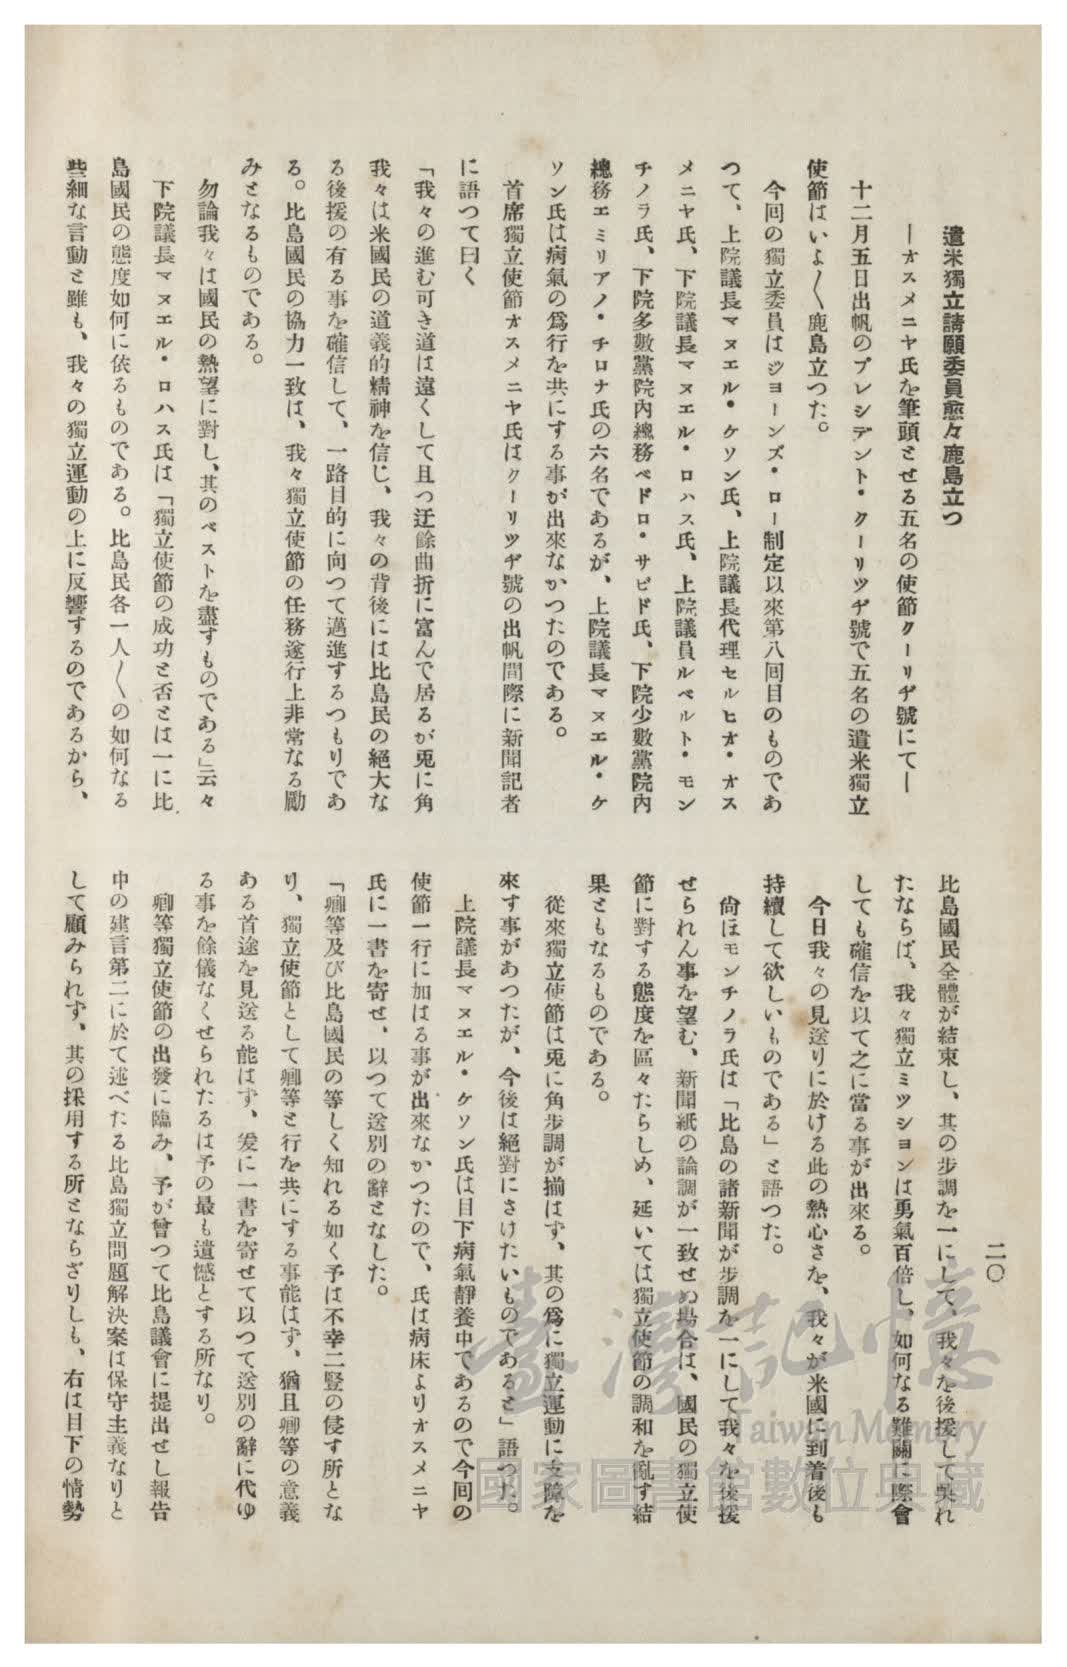 二〇
遣米獨立請願委員愈々鹿島立つ
―オスメニヤ氏を筆頭とせる五名の使節クーリヂ號にて―
十二月五日出帆のプレシデント・クーリツヂ號で五名の遣米獨立
使節はいよ〱鹿島立つた。
今回の獨立委員はジヨーンズ・ロー制定以來第八回目のものであ
つて、上院議長マヌエル・ケソン氏、上院議長代理セルヒオ・オス
メニヤ氏、下院議長マヌエル・ロハス氏、上院議員ルペルト・モン
チノラ氏、下院多數黨院內總務ペドロ・サビド氏、下院少數黨院內
總務エミリアノ・チロナ氏の六名であるが、上院議長マヌエル・ケ
ソン氏は病氣の爲行を共にする事が出來なかつたのである。
首席獨立使節オスメニヤ氏はクーリツヂ號の出帆間際に新聞記者
に語つて曰く
「我々の進む可き道は遠くして且つ迂餘曲折に富んで居るが兎に角
我々は米國民の道義的精神を信じ、我々の背後には比島民の絕大な
る後援の有る事を確信して、一路目的に向つて邁進するつもりであ
る。比島國民の協力一致は、我々獨立使節の任務遂行上非常なる勵
みとなるものである。
勿論我々は國民の熱望に對し、其のベストを盡すものである」云々
下院議長マヌエル・ロハス氏は「獨立使節の成功と否とは一に比
島國民の態度如何に依るものである。比島民各一人〱の如何なる
些細な言動と雖も、我々の獨立運動の上に反響するのであるから、
比島國民全體が結束し、其の步調を一にして、我々を後援して吳れ
たならば、我々獨立ミツシヨンは勇氣百倍し、如何なる難關に際會
しても確信を以て之に當る事が出來る。
今日我々の見送りに於ける此の熱心さを、我々が米國に到着後も
持續して欲しいものである」と語つた。
尙ほモンチノラ氏は「比島の諸新聞が步調を一にして我々を後援
せられん事を望む、新聞紙の論調が一致せぬ場合は、國民の獨立使
節に對する態度を區々たらしめ、延いては獨立使節の調和を亂す結
果ともなるものである。
從來獨立使節は兎に角步調が揃はず、其の爲に獨立運動に支障を
來す事があつたが、今後は絕對にさけたいものであると」語つた。
上院議長マヌエル・ケソン氏は目下病氣靜養中であるので今回の
使節一行に加はる事が出來なかつたので、氏は病床よりオスメニヤ
氏に一書を寄せ、以つて送別の辭となした。
「卿等及び比島國民の等しく知れる如く予は不幸二豎の侵す所とな
り、獨立使節として卿等と行を共にする事能はず、猶且卿等の意義
ある首途を見送る能はず、爰に一書を寄せて以つて送別の辭に代ゆ
る事を餘儀なくせられたるは予の最も遺憾とする所なり。
卿等獨立使節の出發に臨み、予が曾つて比島議會に提出せし報告
中の建言第二に於て述べたる比島獨立問題解決案は保守主義なりと
して顧みられず、其の採用する所とならざりしも、右は目下の情勢
臺灣記憶
Taiwan Memory
國家圖書館數位典藏